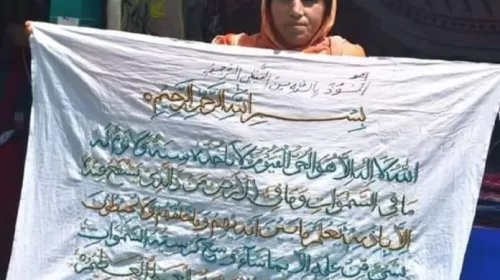 اعوذ بالله من الشيطن الرجيم
بسم الله الرحمن الرحيم
الله لا اله الا هو الحي القيوم لا تاخذه سنة ولا نوم له
ما في السموات وما في الارض من ذا الذي يشفع عنده
الا باذنه يعلم ما بين ايديهم وما خلفهم ولا يحيطون
بشيء من علمه الا بما شاء وسع كرسيه السموات
العظيم